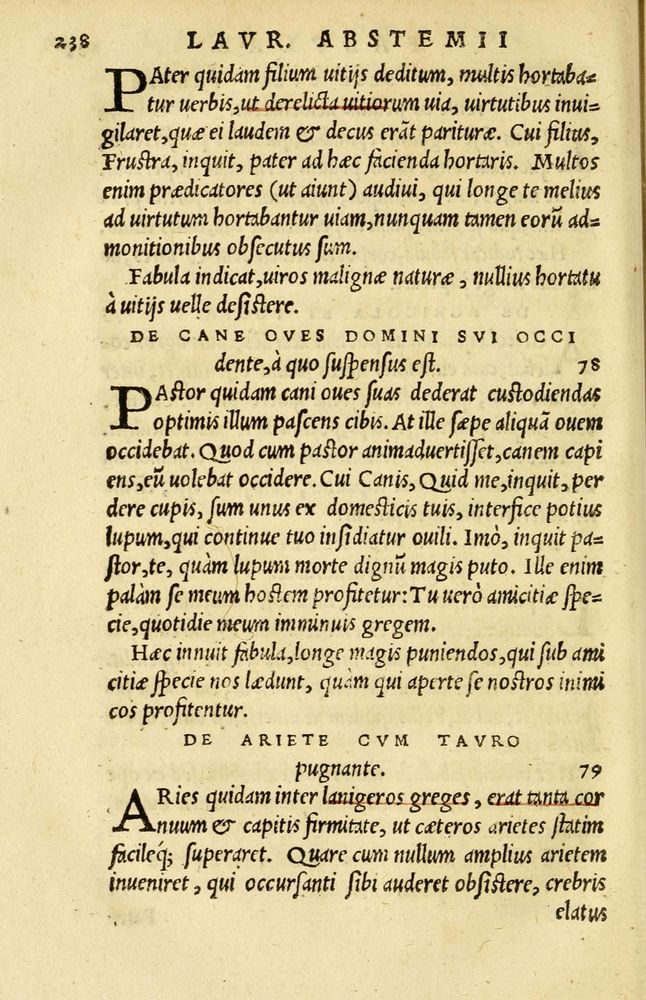 238 LAVR. ABSTEMII
PAter quidam filium uitijs deditum, multis hortaba-
tur uerbis, ut derelicta uitiorum uia, uirtutibus inui-
gilaret, quæ ei laudem & decus erāt parituræ. Cui filius,
Frustra, inquit, pater ad hæc facienda hortaris. Multos
enim prædicatores (ut aiunt) audiui, qui longe te melius
ad uirtutum hortabantur uiam, nunquam tamen eorū ad-
monitionibus obsecutus sum.
Fabula indicat, uiros malignæ naturæ, nullius hortatu
à uitijs uelle desistere.
DE CANE OVES DOMINI SVI OCCI
dente, à quo suspensus est. 78
PAstor quidam cani oues suas dederat custodiendas
optimis illum pascens cibis. At ille sæpe aliquā ouem
occidebat. Quod cum pastor animaduertisset, canem capi
ens, eū uolebat occidere. Cui Canis, Quid me, inquit, per
dere cupis, sum unus ex domesticis tuis, interfice potius
lupum, qui continue tuo insidiatur ouili. Imò, inquit pa-
stor, te, quàm lupum morte dignū magis puto. Ille enim
palàm se meum hostem profitetur: Tu uerò amicitiæ spe-
cie, quotidie meum imminuis gregem.
Hæc innuit fabula, longe magis puniendos, qui sub ami
citiæ specie nos lædunt, quàm qui aperte se nostros inimi
cos profitentur.
DE ARIETE CVM TAVRO
pugnante. 79
ARies quidam inter lanigeros greges, erat tanta cor
nuum & capitis firmitate, ut cæteros arietes statim
facileq́; superaret. Quare cum nullum amplius arietem
inueniret, qui occursanti sibi auderet obsistere, crebris
elatus